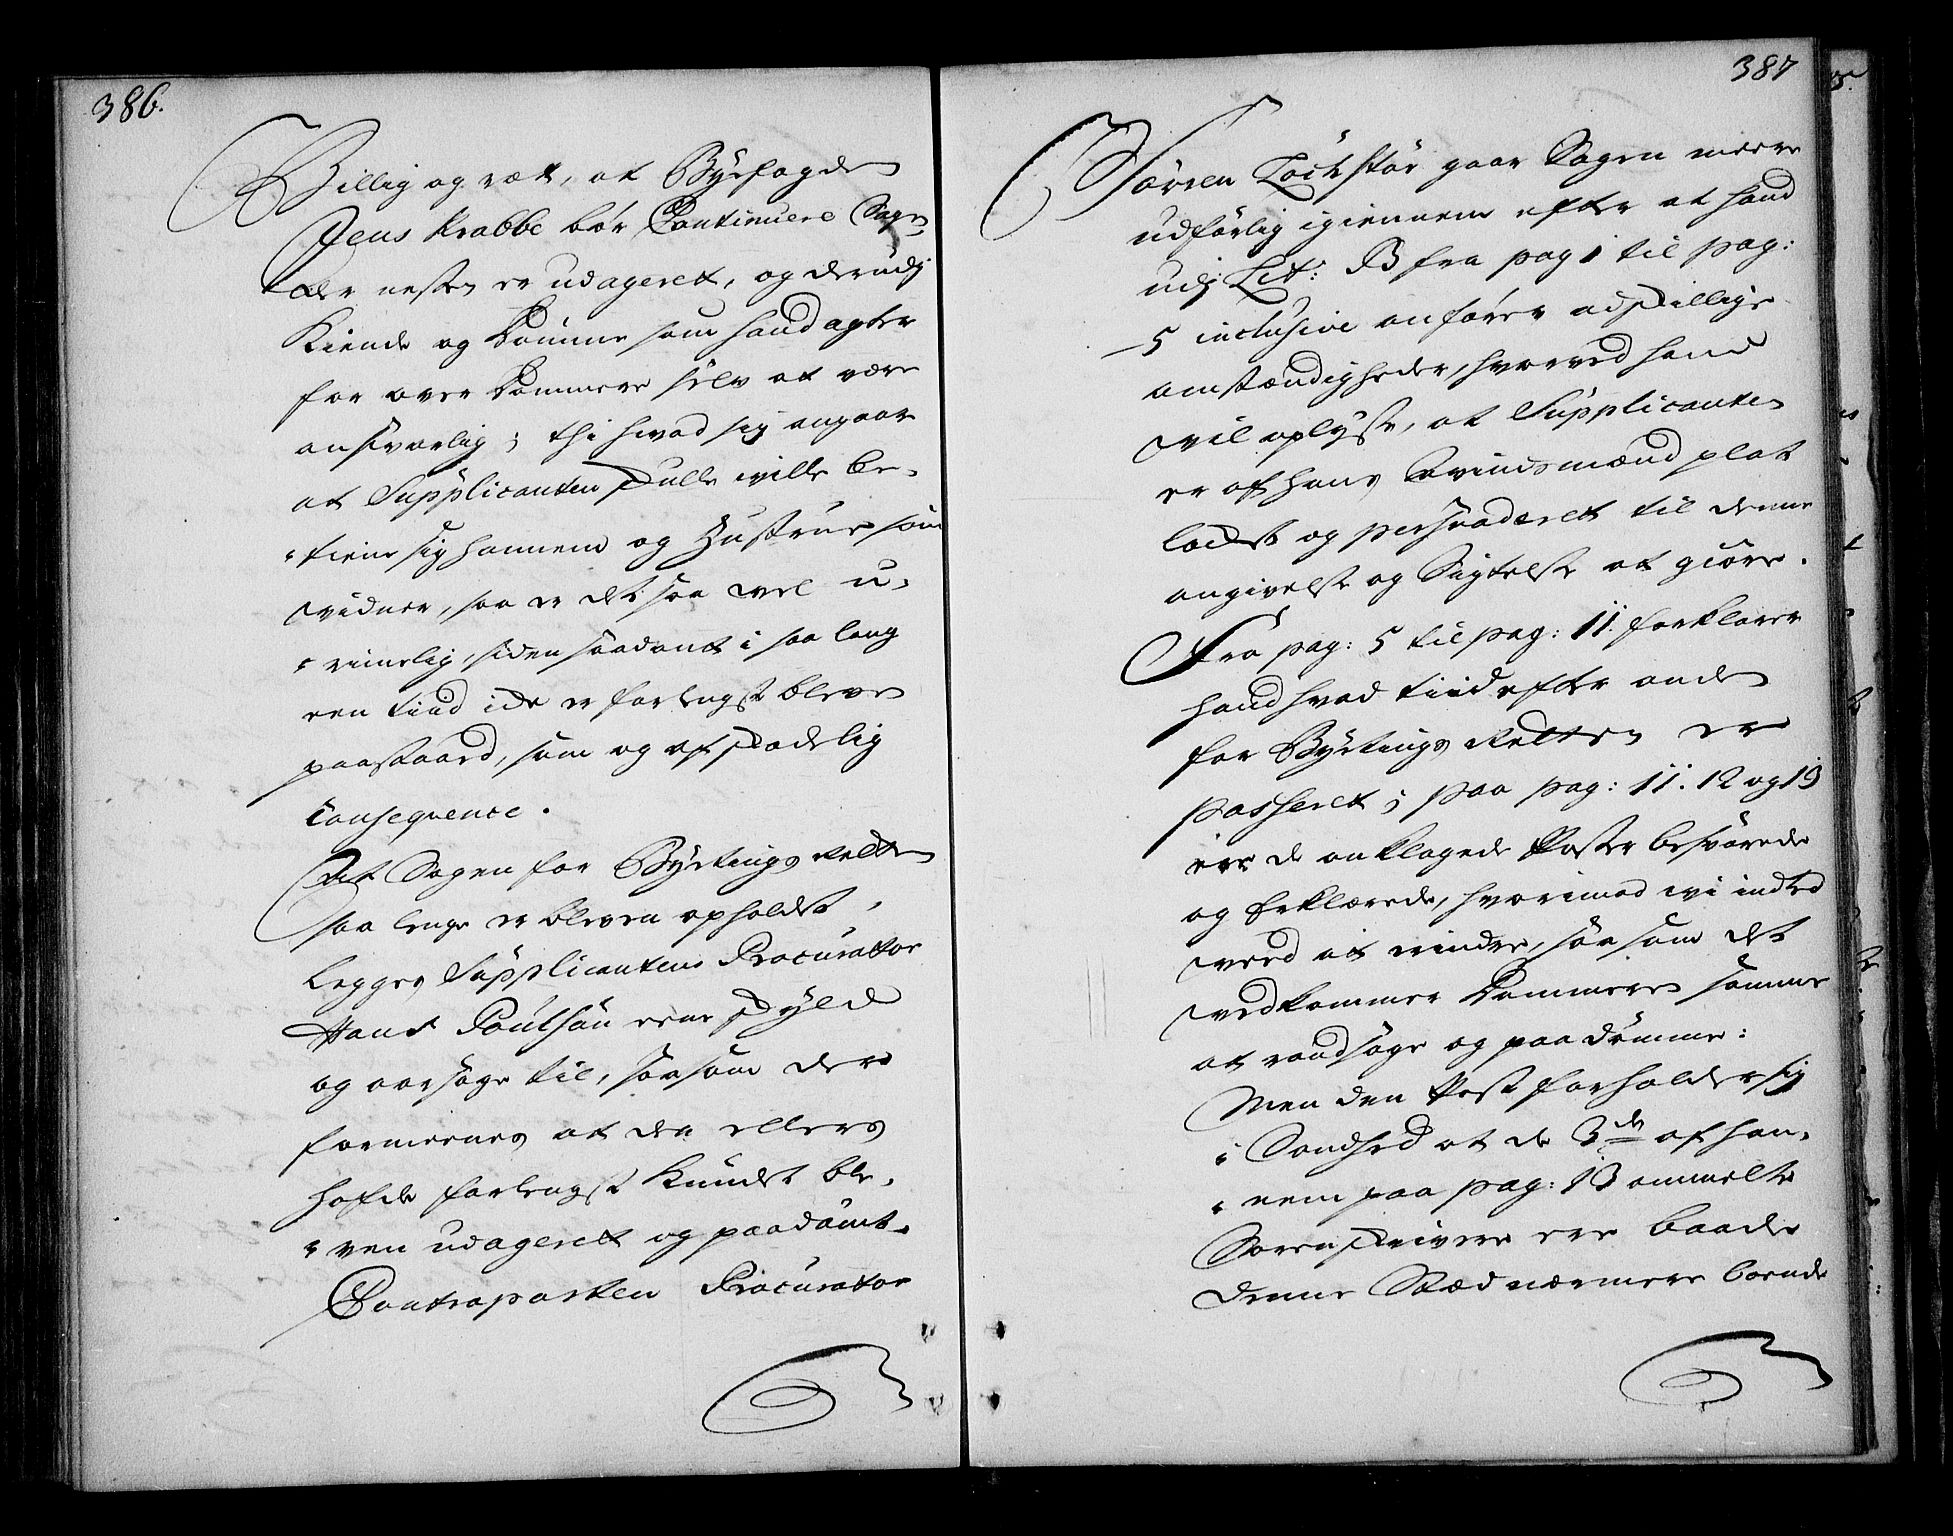 386.
Billig og ræt, at Byefogden
Jens Krabbe bør Continuere Sagen
der nesten er udageret, og derudj
Kiende og Dømme som hand agter
for over Dommere selv at være
ansvarlig; thi hvad sig angaar
at Supplicanten skulle wille be-
tiene sig hannem og Hustrue som
vidner, saa er det saa vel u-
rimelig, siden saadant i saa lang
een tiid icke er forlengst bleven
paastaaed, som og af skadelig
Consequence.
At Sagen for Byetings Retten
saa lenge er bleven opholdet,
legges Supplicantens Procurator
Hans Poulsøn eene skyld
og aarsage til, saasom der
formeenes at den ellers
hafde forlengst kundet ble-
ven udageret og paadømt.
Contraparten Procurator
387
Søren Løchstør gaar Sagen meere
udførlig igiennem efter at hand
udj Lit: B fra pag 1 til pag:
5 inclusive anfører adskillige
omstændigheder, hvorved hand
vil oplyse, at Supplicanten
er af hans Avindsmænd plat
locket og persvaderet til denne
angivelse og Sigtelse at giøre.
Fra pag: 5 til pag: 11. forklarer
hand hvad tiid efter anden
for Byetings Retten er
Passeret; paa pag: 11. 12 og 13
ere de anklagede Poster besvarede
og Erklærede, hvorimod wi indted
veed at erindre, saasom det
vedkommer Dommeren samme
at randsage og paadømme:
Men den Post forholder sig
i Sandhed at de 3de af han-
nem paa pag: 13 ommelte
Sorenskrivere ere baade
denne Stæd nærmere boende